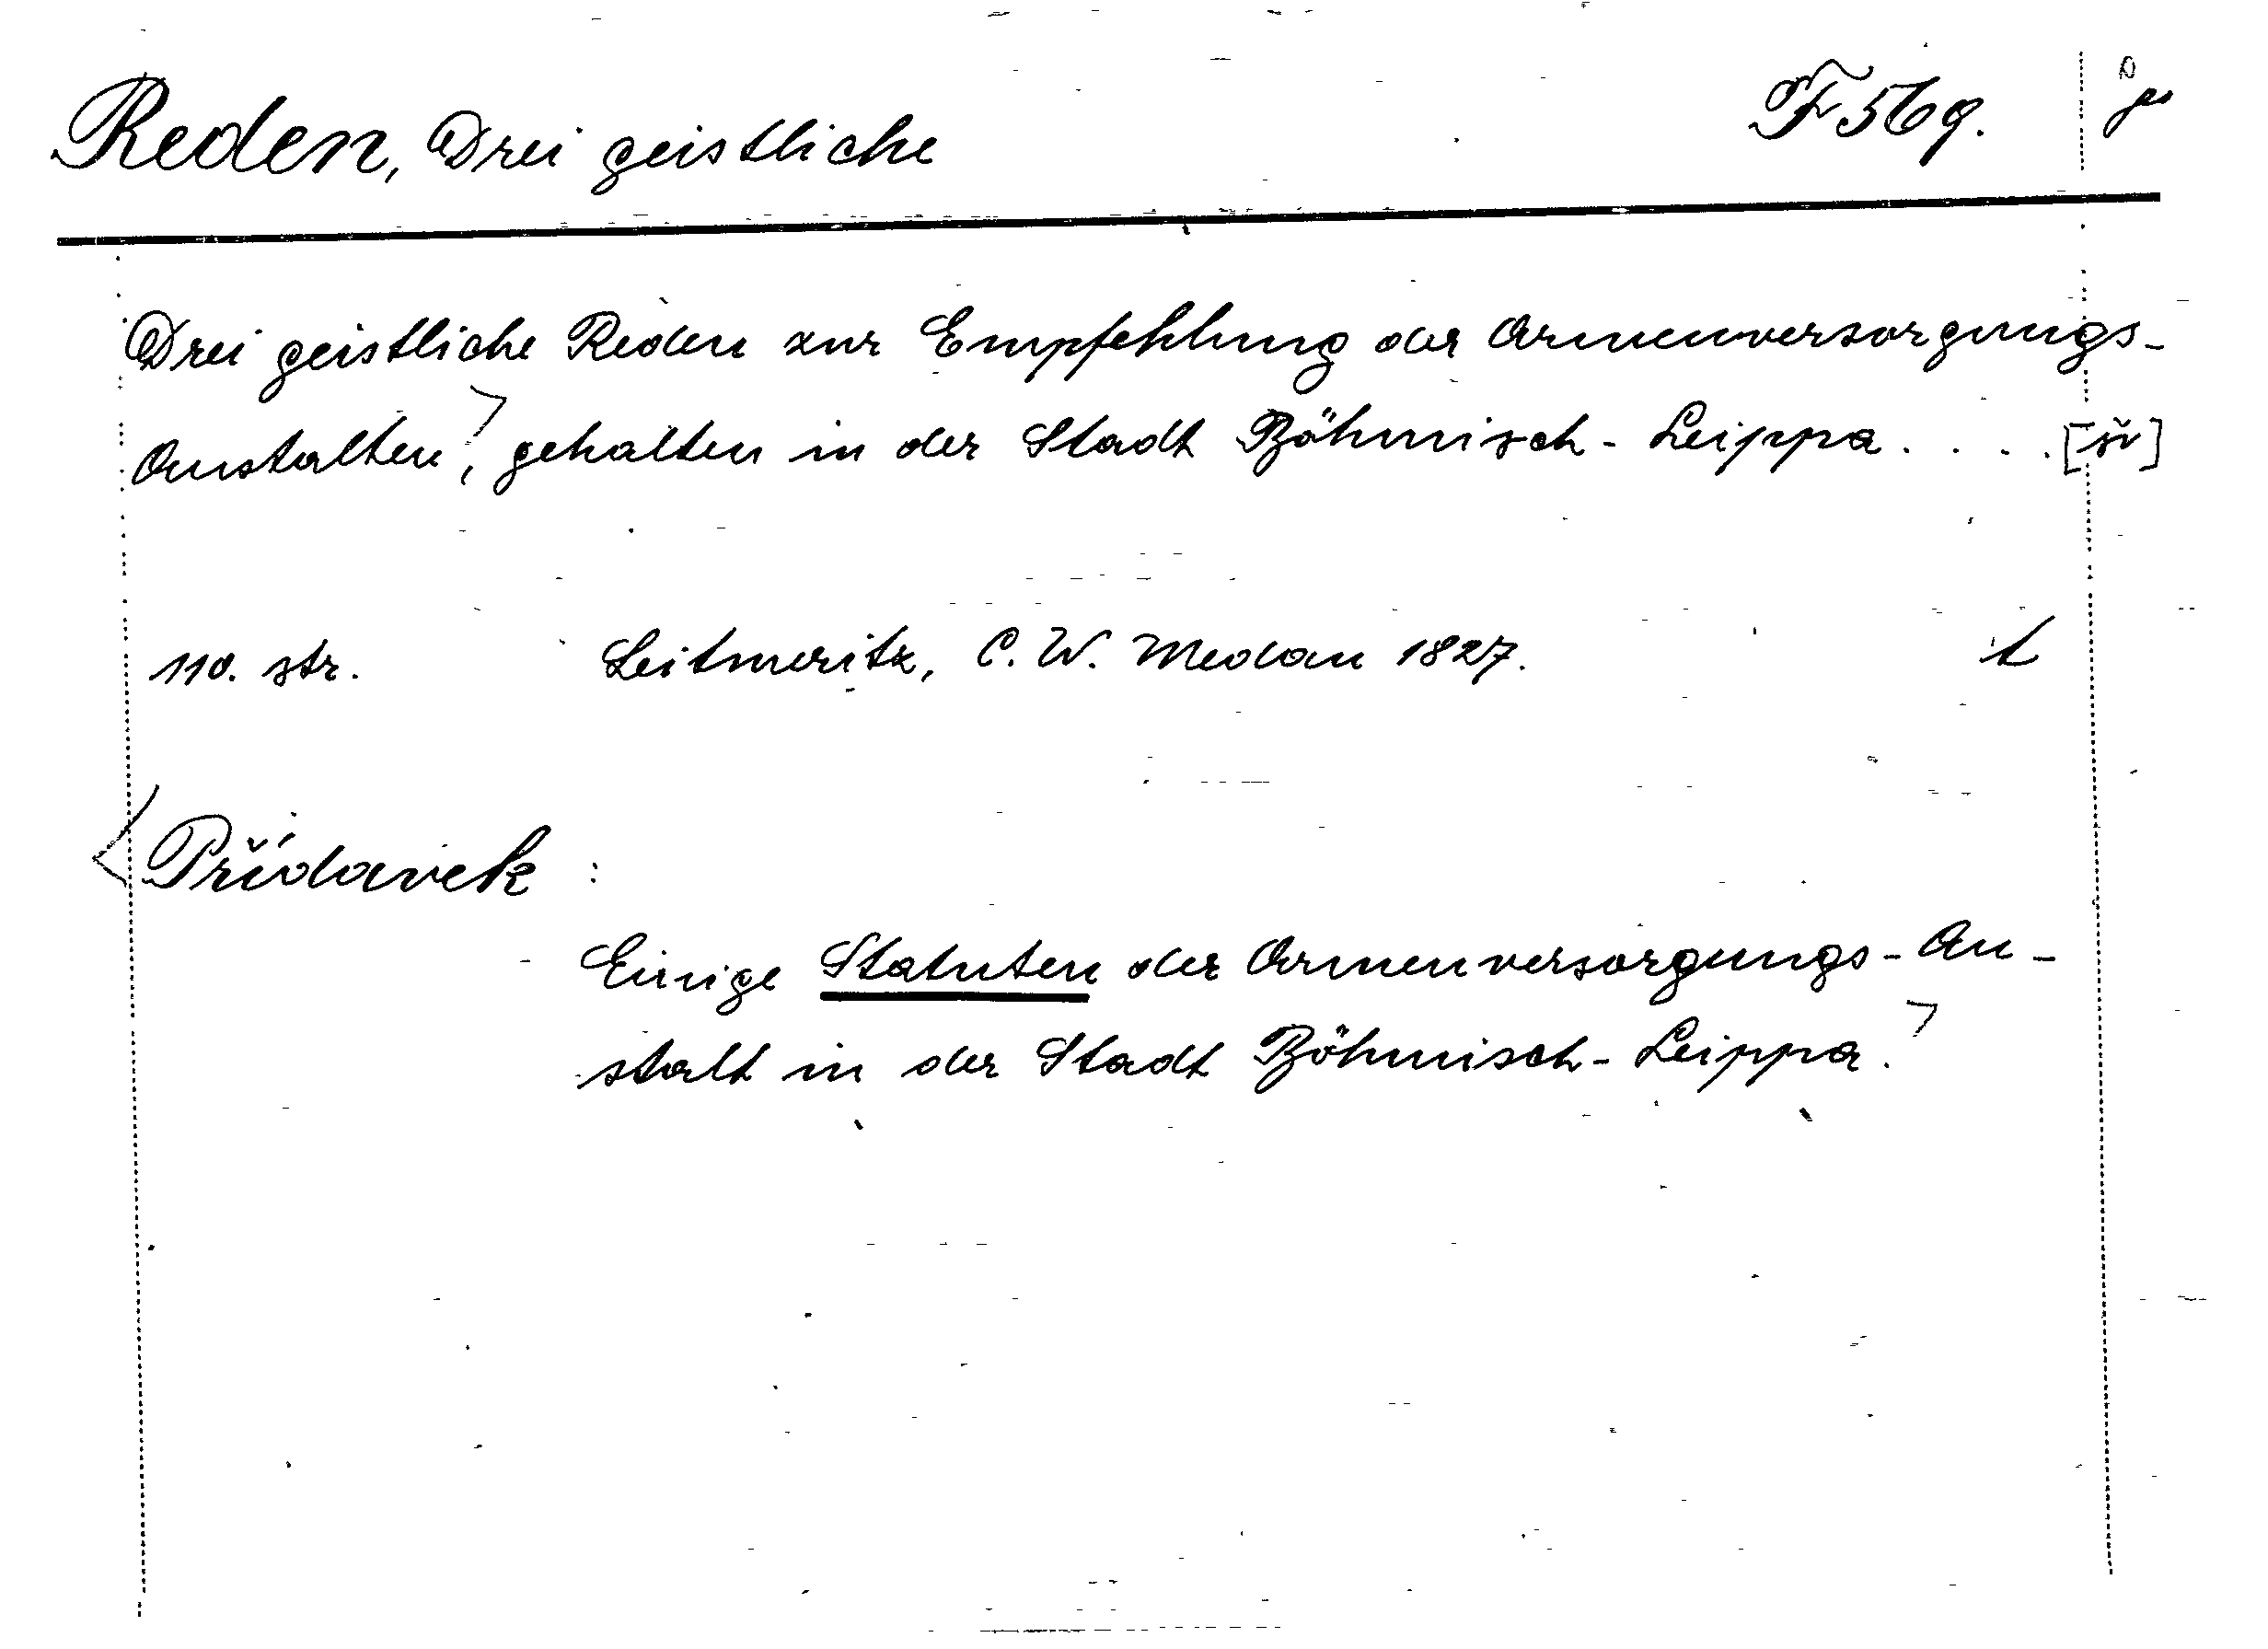 Reden, Drei geistliche F 569.
Drei geistliche Reden zur Empfehlung der Armenversorgungs-
Anstalten, gehalten in der Stadt Böhmisch-Leippa . . . . [šv]
110. str. Leitmeritz, C. W. Medau 1827. t
Přídavek :
Einige Statuten der Armenversorgungs-An-
stalt in der Stadt Böhmisch-Leippa.